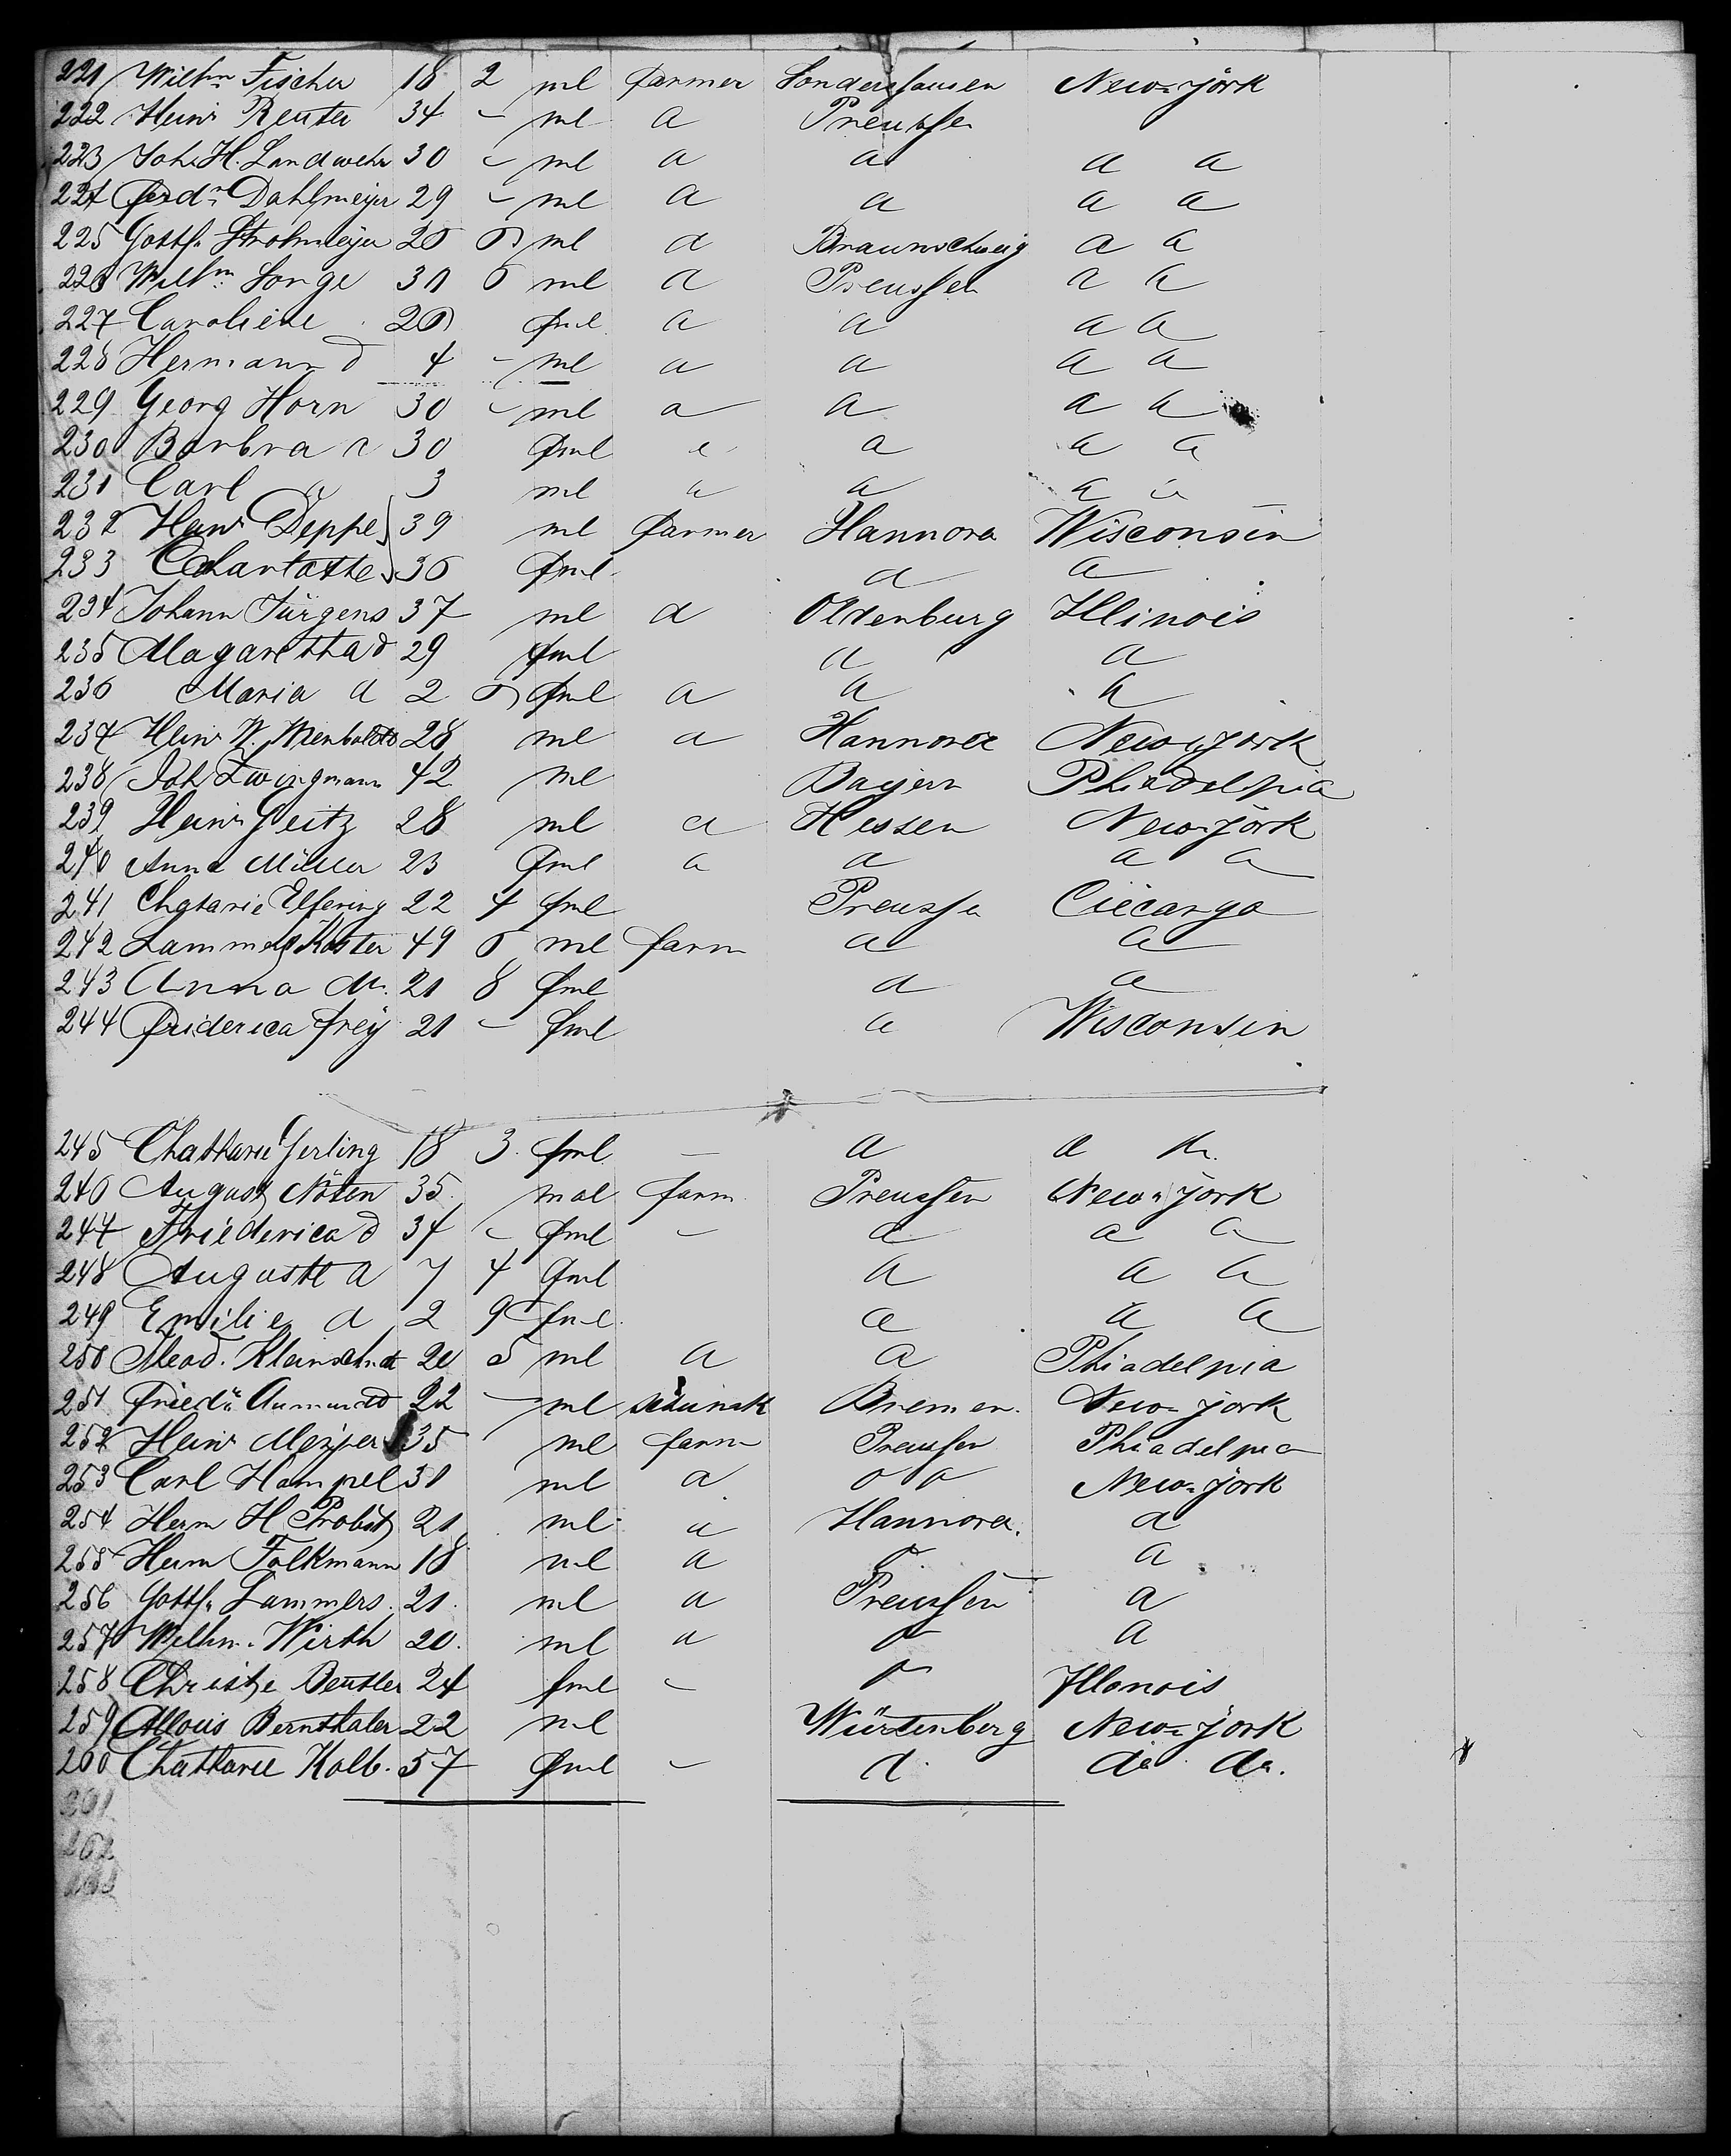 221 Wilhm Fischer 18 2 ml farmer Sondershausen New-york
222 Heinr Reuter 34 - ml a Preussen
223 Joh H. Landwehr 30 - ml a a a a
224 Ferdn Dahlmeyer 29 - ml a a a a
225 Gottf. Strohmeyer 26 6 ml a Braunschweig a a
226 Wilhm Lange 31 6 ml a Preussen a a
227 Caroliene 26 fml a a a a
228 Hermann d 4 - ml a a a a
229 Georg Horn 30 - ml a a a a
230 Barbra a 30 fml a a a a
231 Carl a 3 ml a a a a
232 Heinr Deppe 39 ml farmer Hannover Wisconsin
233 Charlotte 36 fml a a
234 Johann Jürgens 37 ml a Oldenburg Illinois
235 Magaretha d 29 fml a a
236 Maria a 2 6 fml a a a
237 Heinr W. 28 ml a Hannover New-york
238 Joh Zwingmann 42 ml Bayern Phiadelpia
239 Heinr Geitz 28 ml a Hessen New-york
240 Anna Müller 23 fml a a a a
241 Chatarie Elfering 22 4 fml Preussen Ciecargo
242 Lammers Köster 49 6 ml farm a a
243 Anna M. 21 8 fml a a
244 Friderica Frey 21 - fml a Wisconsin
245 Chatharie Gerling 18 3 fml - a a a
246 August Nöten 35 mal farm Preussen New-york
247 Friederica d 34 - fml - a a a
248 Auguste a 7 4 fml a a a
249 Emilie a 2 9 fml a a a
250 5 ml a a Phiadelpia
251 Friedr 22 - ml Bremen New-york
252 Heinr Meyer 35 ml farm Preussen Phiadelpia
253 Carl Hampel 31 ml a o o New-york
254 Herm H Probst 21 ml a Hannover a
255 Herm Folkmann 18 ml a a
256 Gottf. Lammers 21 ml a Preussen a
257 Wilhm. Wirth 20 ml a a
258 Christie Beutler 24 fml - Illonois
259 Allois Bernthaler 22 ml Würtenberg New-york
260 Chatharie Kolb. 57 fml - d. do do.
261
262
263